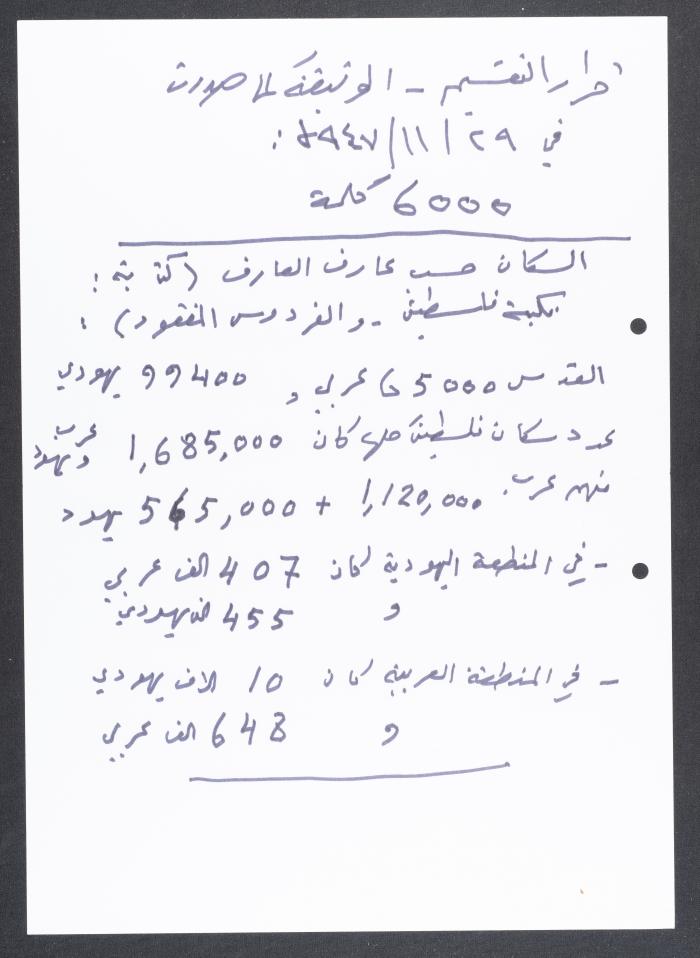 قرار التقسيم - الوثيقة كما صدرت
في ٢٩/١١/١٩٤٧ :
6000 كلمة
السكان حسب عارف العارف (كتابه :
نكبة فلسطين - والفردوس المفقود) :
القدس 65000 عربي و 99400 يهودي
عدد سكان فلسطين كان 1,685,000 عرب ويهود
منهم عرب 1,120,000 + 565,000 يهود
- في المنطقة اليهودية كان 407 الف عربي
و 455 الف يهودي
- في المنطقة العربية كان 10 الاف يهودي
و 648 الف عربي